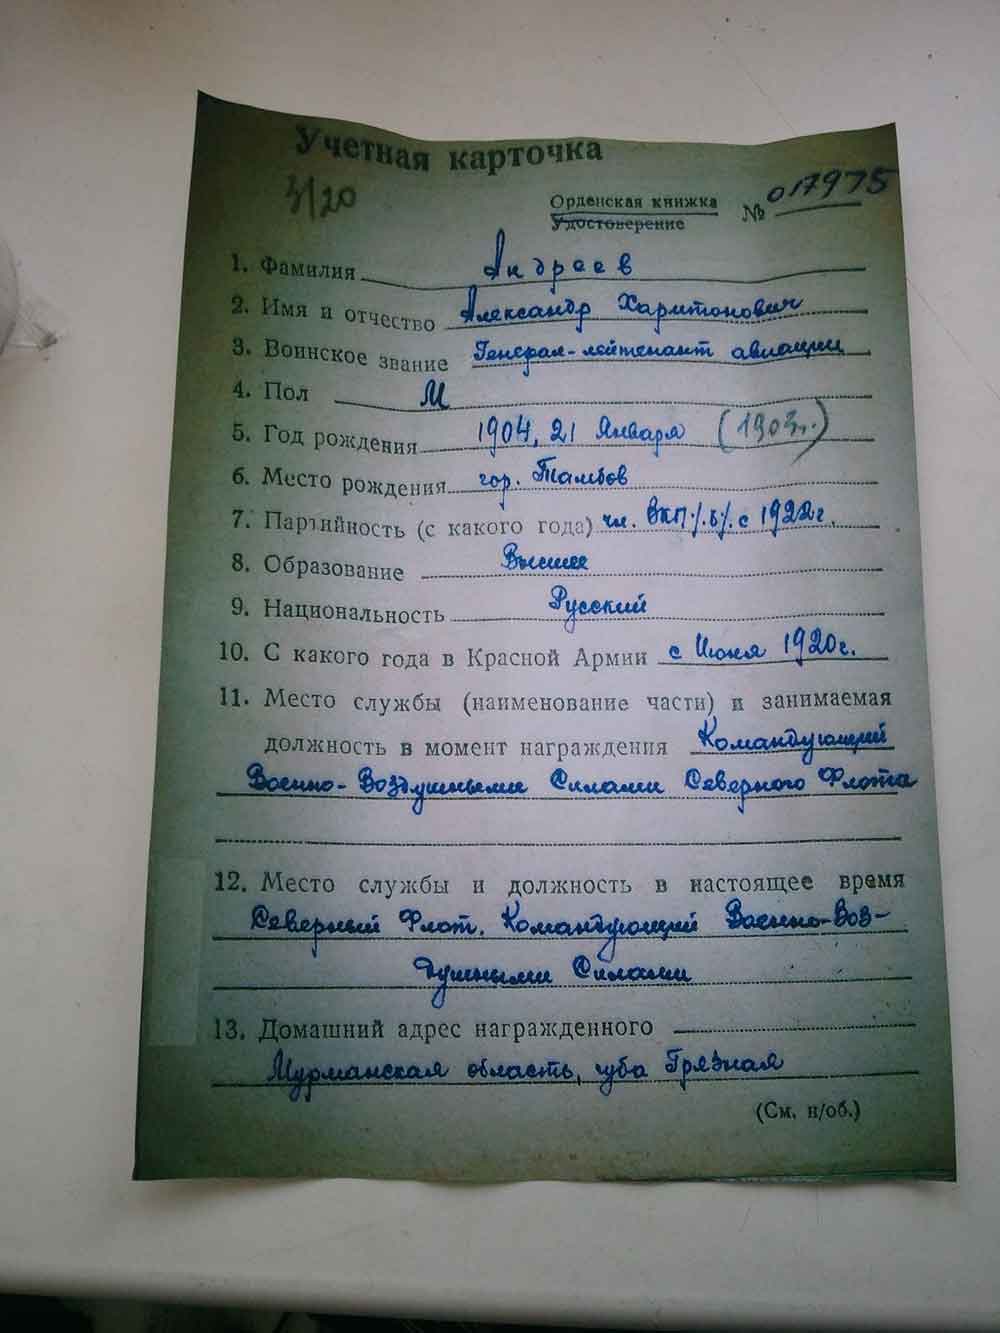 Учетная карточка
3/20
Орденская книжка № 017975
Удостоверение
1. Фамилия Андреев
2. Имя и отчество Александр Харитонович
3. Воинское звание Генерал-лейтенант авиации
4. Пол М
5. Год рождения 1904, 21 Января (1903г.)
6. Место рождения гор. Тамбов
7. Партийность (с какого года) чл. ВКП/.б/. с 1922г.
8. Образование Высшее
9. Национальность Русский
10. С какого года в Красной Армии с Июня 1920г.
11. Место службы (наименование части) и занимаемая
должность в момент награждения Командующий
Военно-Воздушными Силами Северного Флота
12. Место службы и должность в настоящее время
Северный Флот. Командующий Военно-Воз-
душными Силами
13. Домашний адрес награжденного
Мурманская область, губа Грязная
(См. н/об.)